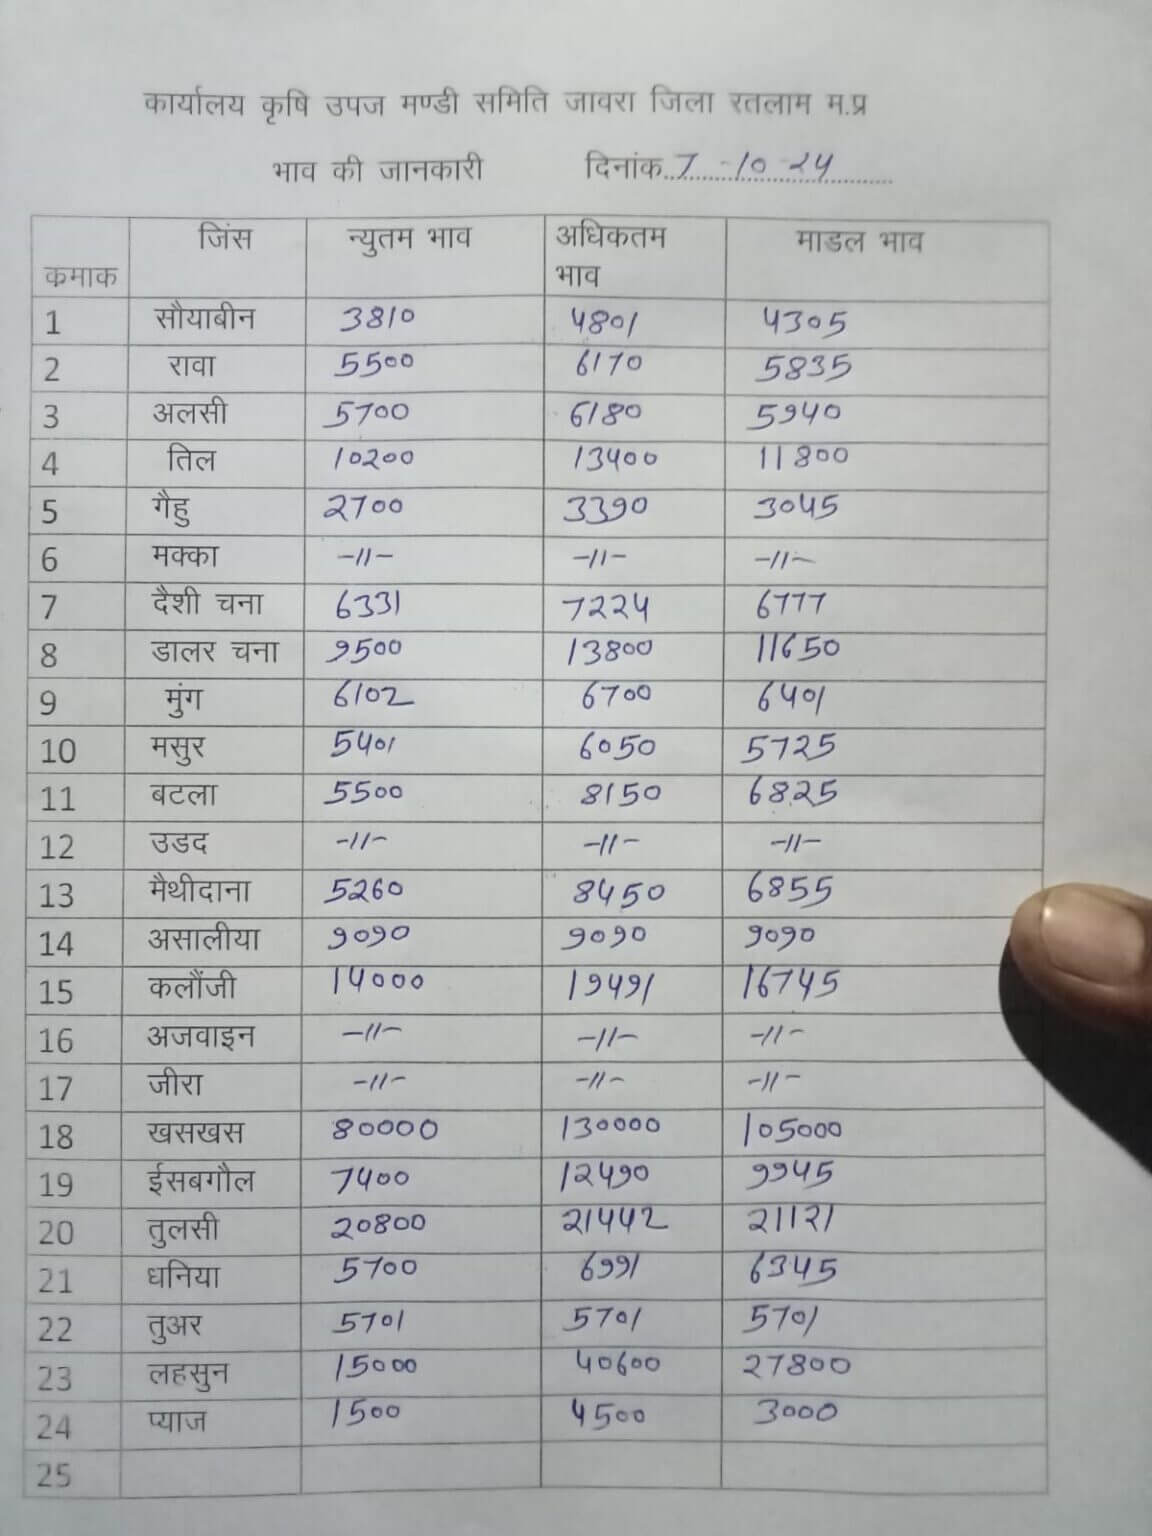 कार्यालय कृषि उपज मण्डी समिति जावरा जिला रतलाम म.प्र
भाव की जानकारी दिनांक 7-10-24
कमाक जिंस न्युतम भाव अधिकतम भाव माडल भाव
1 सौयाबीन 3810 4801 4305
2 रावा 5500 6170 5835
3 अलसी 5700 6180 5940
4 तिल 10200 13400 11800
5 गैहु 2700 3390 3045
6 मक्का -11- -11- -11-
7 दैशी चना 6331 7224 6777
8 डालर चना 9500 13800 11650
9 मुंग 6102 6700 6401
10 मसुर 5401 6050 5725
11 बटला 5500 8150 6825
12 उडद -11- -11- -11-
13 मैथीदाना 5260 8450 6855
14 असालीया 9090 9090 9090
15 कलौंजी 14000 19491 16745
16 अजवाइन -11- -11- -11-
17 जीरा -11- -11- -11-
18 खसखस 80000 130000 105000
19 ईसबगौल 7400 12490 9945
20 तुलसी 20800 21442 21121
21 धनिया 5700 6991 6345
22 तुअर 5701 5701 5701
23 लहसुन 15000 40600 27800
24 प्याज 1500 4500 3000
25